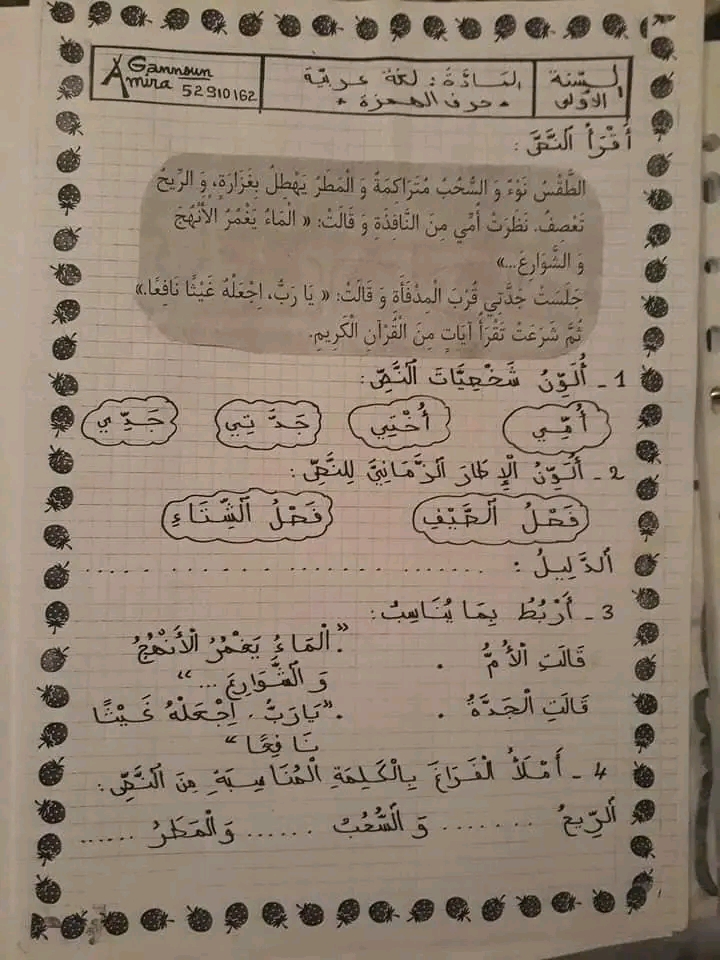 السّنة الأولى
المَادَّةُ: لغة عربيّة
• حرف الهمزة •
Gannoun
Amira 52910162
أَقْرَأُ النَّصَّ:
الطَّقْسُ نَوْءٌ وَ السُّحُبُ مُتَرَاكِمَةٌ وَ الْمَطَرُ يَهْطِلُ بِغَزَارَةٍ، وَ الرِّيحُ
تَعْصِفُ. نَظَرَتْ أُمِّي مِنَ النَّافِذَةِ وَ قَالَتْ: « الْمَاءُ يَغْمُرُ الْأَنْهُجَ
وَ الشَّوَارِعَ...»
جَلَسَتْ جَدَّتِي قُرْبَ الْمِدْفَأَةِ وَ قَالَتْ: « يَا رَبُّ، اِجْعَلْهُ غَيْثًا نَافِعًا.»
ثُمَّ شَرَعَتْ تَقْرَأُ آيَاتٍ مِنَ الْقُرْآنِ الْكَرِيمِ.
1 - أُلَوِّنُ شَخْصِيَّاتَ النَّصِّ:
أُمِّي أُخْتِي جَدَّتِي جَدِّي
2 - أُلَوِّنُ الْإِطَارَ الزَّمَانِيَّ لِلنَّصِّ:
فَصْلُ الصَّيْفِ فَصْلُ الشِّتَاءِ
الدَّلِيلُ: ..............................
3 - أَرْبُطُ بِمَا يُنَاسِبُ:
قَالَتِ الْأُمُّ • • "الْمَاءُ يَغْمُرُ الْأَنْهُجُ
وَ الشَّوَارِعَ ..."
قَالَتِ الْجَدَّةُ • • "يَارَبُّ، اِجْعَلْهُ غَيْثًا
نَافِعًا"
4 - أَمْلَأُ الْفَرَاغَ بِالْكَلِمَةِ الْمُنَاسِبَةِ مِنَ النَّصِّ:
الرِّيحُ ........ وَ السُّحُبُ ...... وَ الْمَطَرُ ......